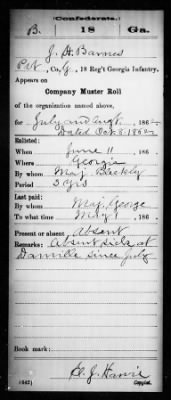 (Confederate.)
B. 18 Ga.
J. H. Barnes
Pvt, Co. G, 18 Reg't Georgia Infantry.
Appears on
Company Muster Roll
of the organization named above,
for July and Augt, 186
Dated Oct 8, 1862
Enlisted:
When June 11, 186
Where Georgia
By whom Maj. Blackly
Period 3 yrs
Last paid:
By whom Maj. George
To what time May 1, 186
Present or absent Absent
Remarks: Absent sick at
Danville since July
Book mark:
(642) Copyist.